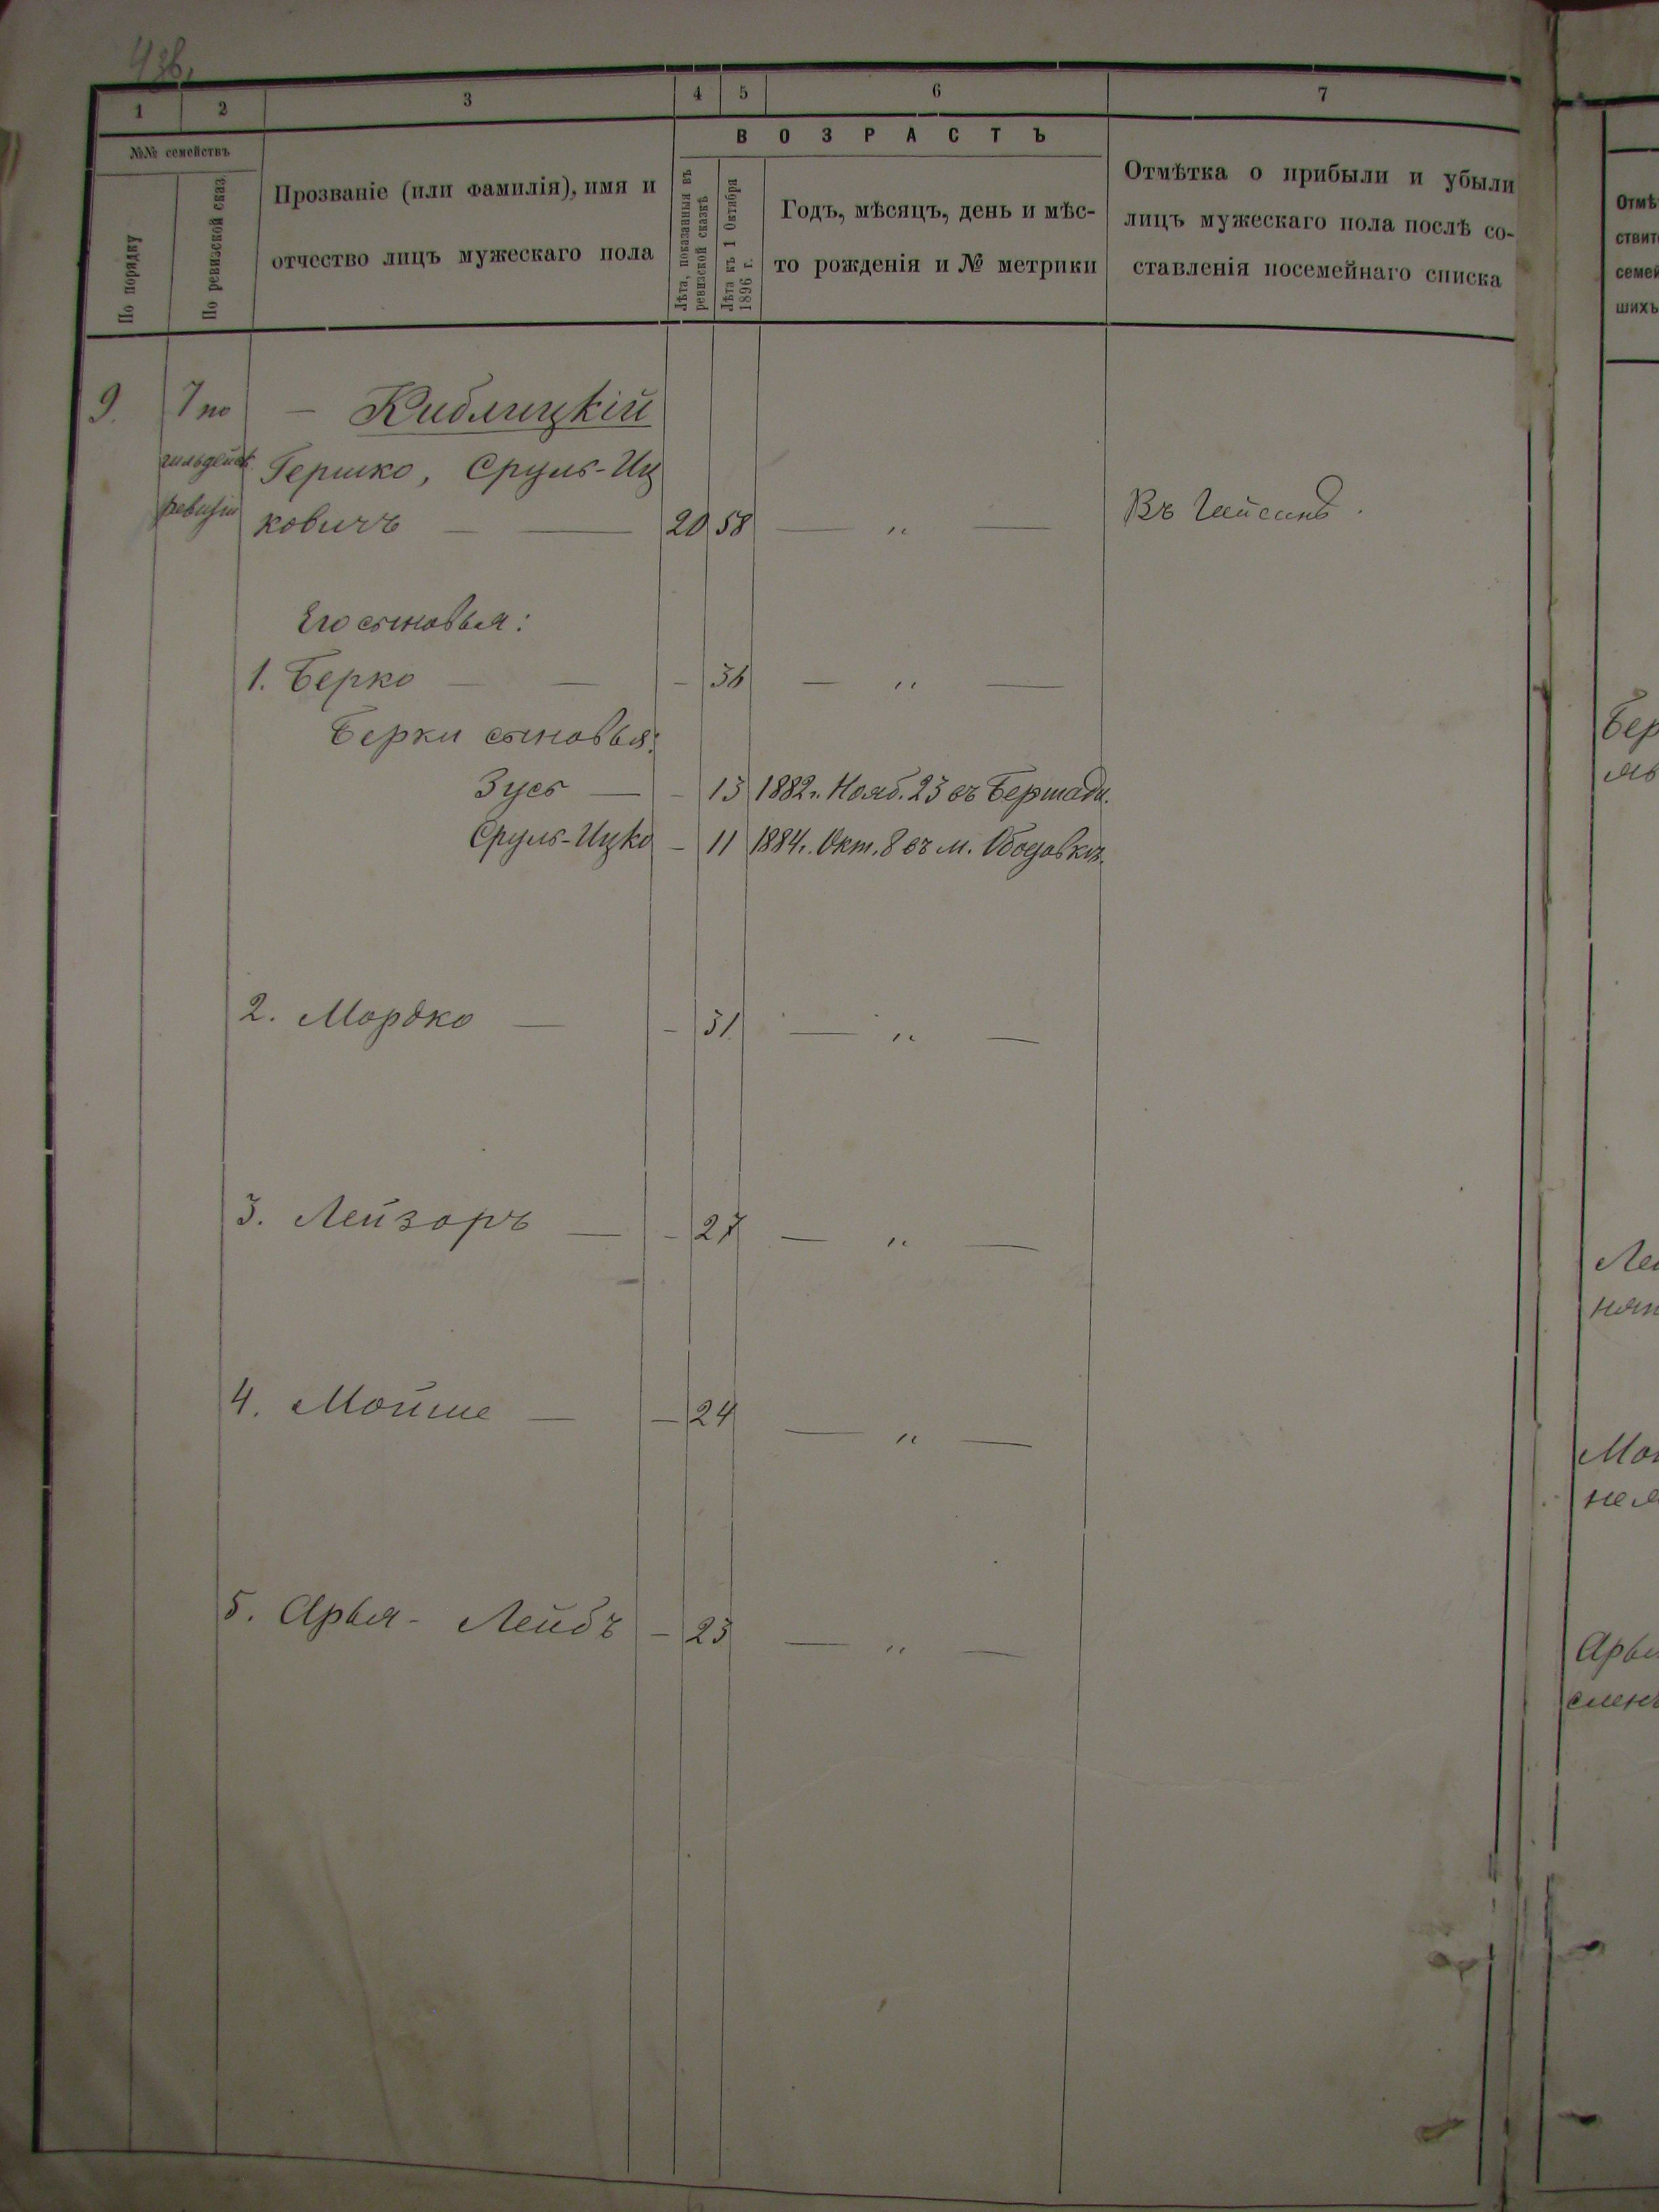 1 2 3 4 5 6 7
№№ семействъ
По порядку
По ревизской сказ.
Прозваніе (или фамилія), имя и
отчество лицъ мужескаго пола
ВОЗРАСТЪ
Лѣта, показанныя въ
ревизской сказкѣ
Лѣта къ 1 Октября
1896 г.
Годъ, мѣсяцъ, день и мѣс-
то рожденія и № метрики
Отмѣтка о прибыли и убыли
лицъ мужескаго пола послѣ со-
ставленія посемейнаго списка
9. 7 по — Киблицкій
гильдейск. Гершко, Сруль-Иц
ревизіи ковичъ — — 20 58 — „ — Въ Гайсинѣ.
Его сыновья:
1. Берко — — - 36 — „ —
Берки сыновья:
Зусь — - 13 1882 г. Нояб. 23 въ Бершади.
Сруль-Ицко - 11 1884 г. Окт. 8 въ м. Ободовкѣ.
2. Мордко — - 31 — „ —
3. Лейзоръ — - 27 — „ —
4. Мойше — - 24 — „ —
5. Арья- Лейбъ - 23 — „ —
Отмѣ
ствит
семей
шихъ
Бер
Лей
Мо
Арь